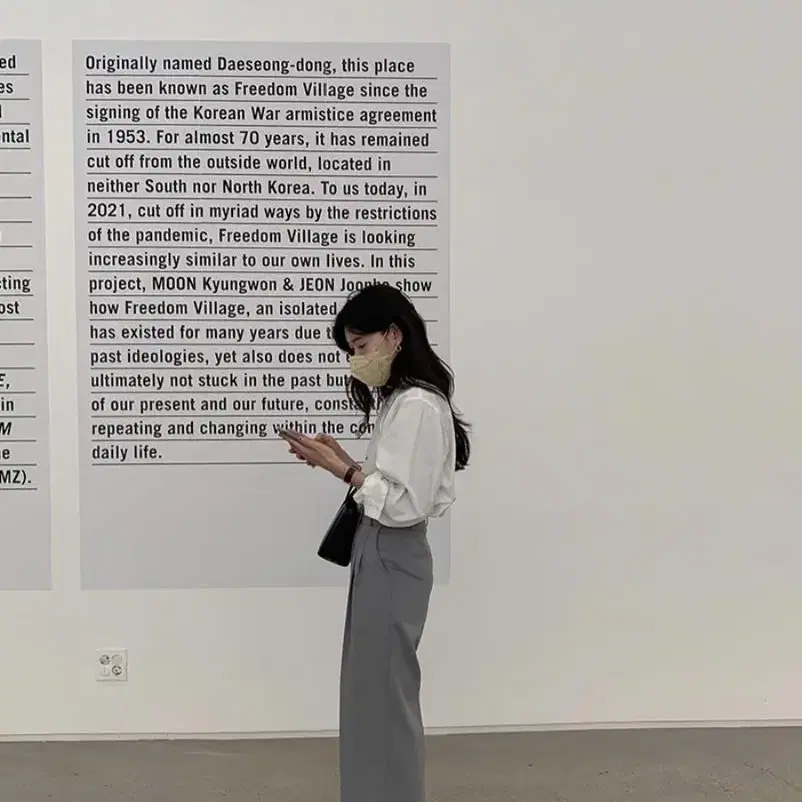 ed
es
ntal
cting
ost
E,
in
M
e
MZ).
Originally named Daeseong-dong, this place
has been known as Freedom Village since the
signing of the Korean War armistice agreement
in 1953. For almost 70 years, it has remained
cut off from the outside world, located in
neither South nor North Korea. To us today, in
2021, cut off in myriad ways by the restrictions
of the pandemic, Freedom Village is looking
increasingly similar to our own lives. In this
project, MOON Kyungwon & JEON Joonho show
how Freedom Village, an isolated
has existed for many years due
past ideologies, yet also does not
ultimately not stuck in the past but
of our present and our future,
repeating and changing within the
daily life.